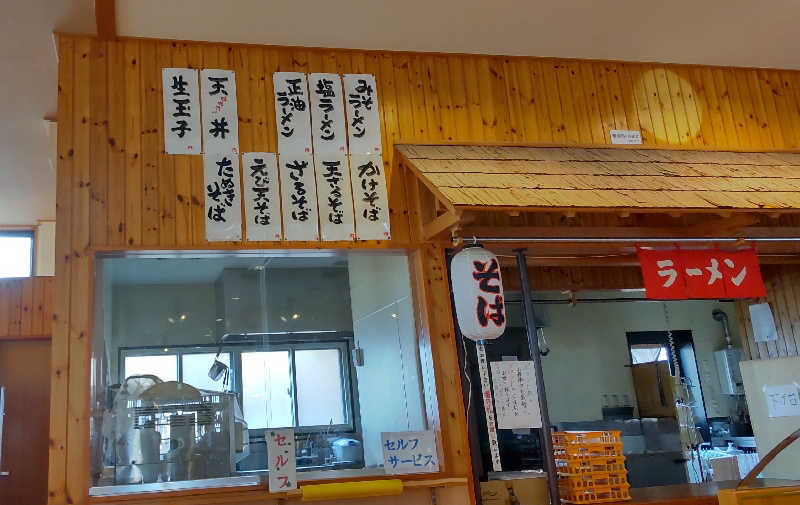 みそラーメン
塩ラーメン
正油ラーメン
天丼
生玉子
かけそば
天ざるそば
ざるそば
えび天そば
たぬきそば
ラーメン
そば
セルフ
セルフ
サービス